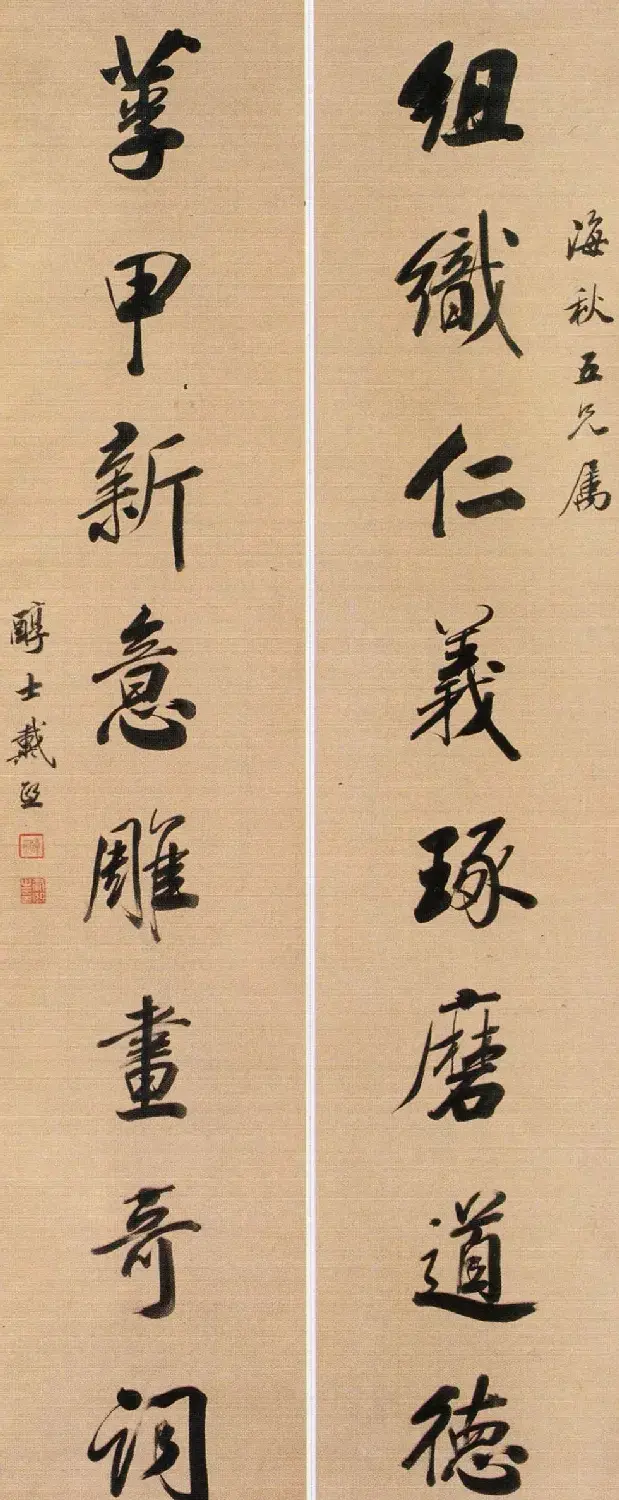 海秋五兄属
組織仁義琢磨道徳
莩甲新意雕畫奇詞
醇士戴熙